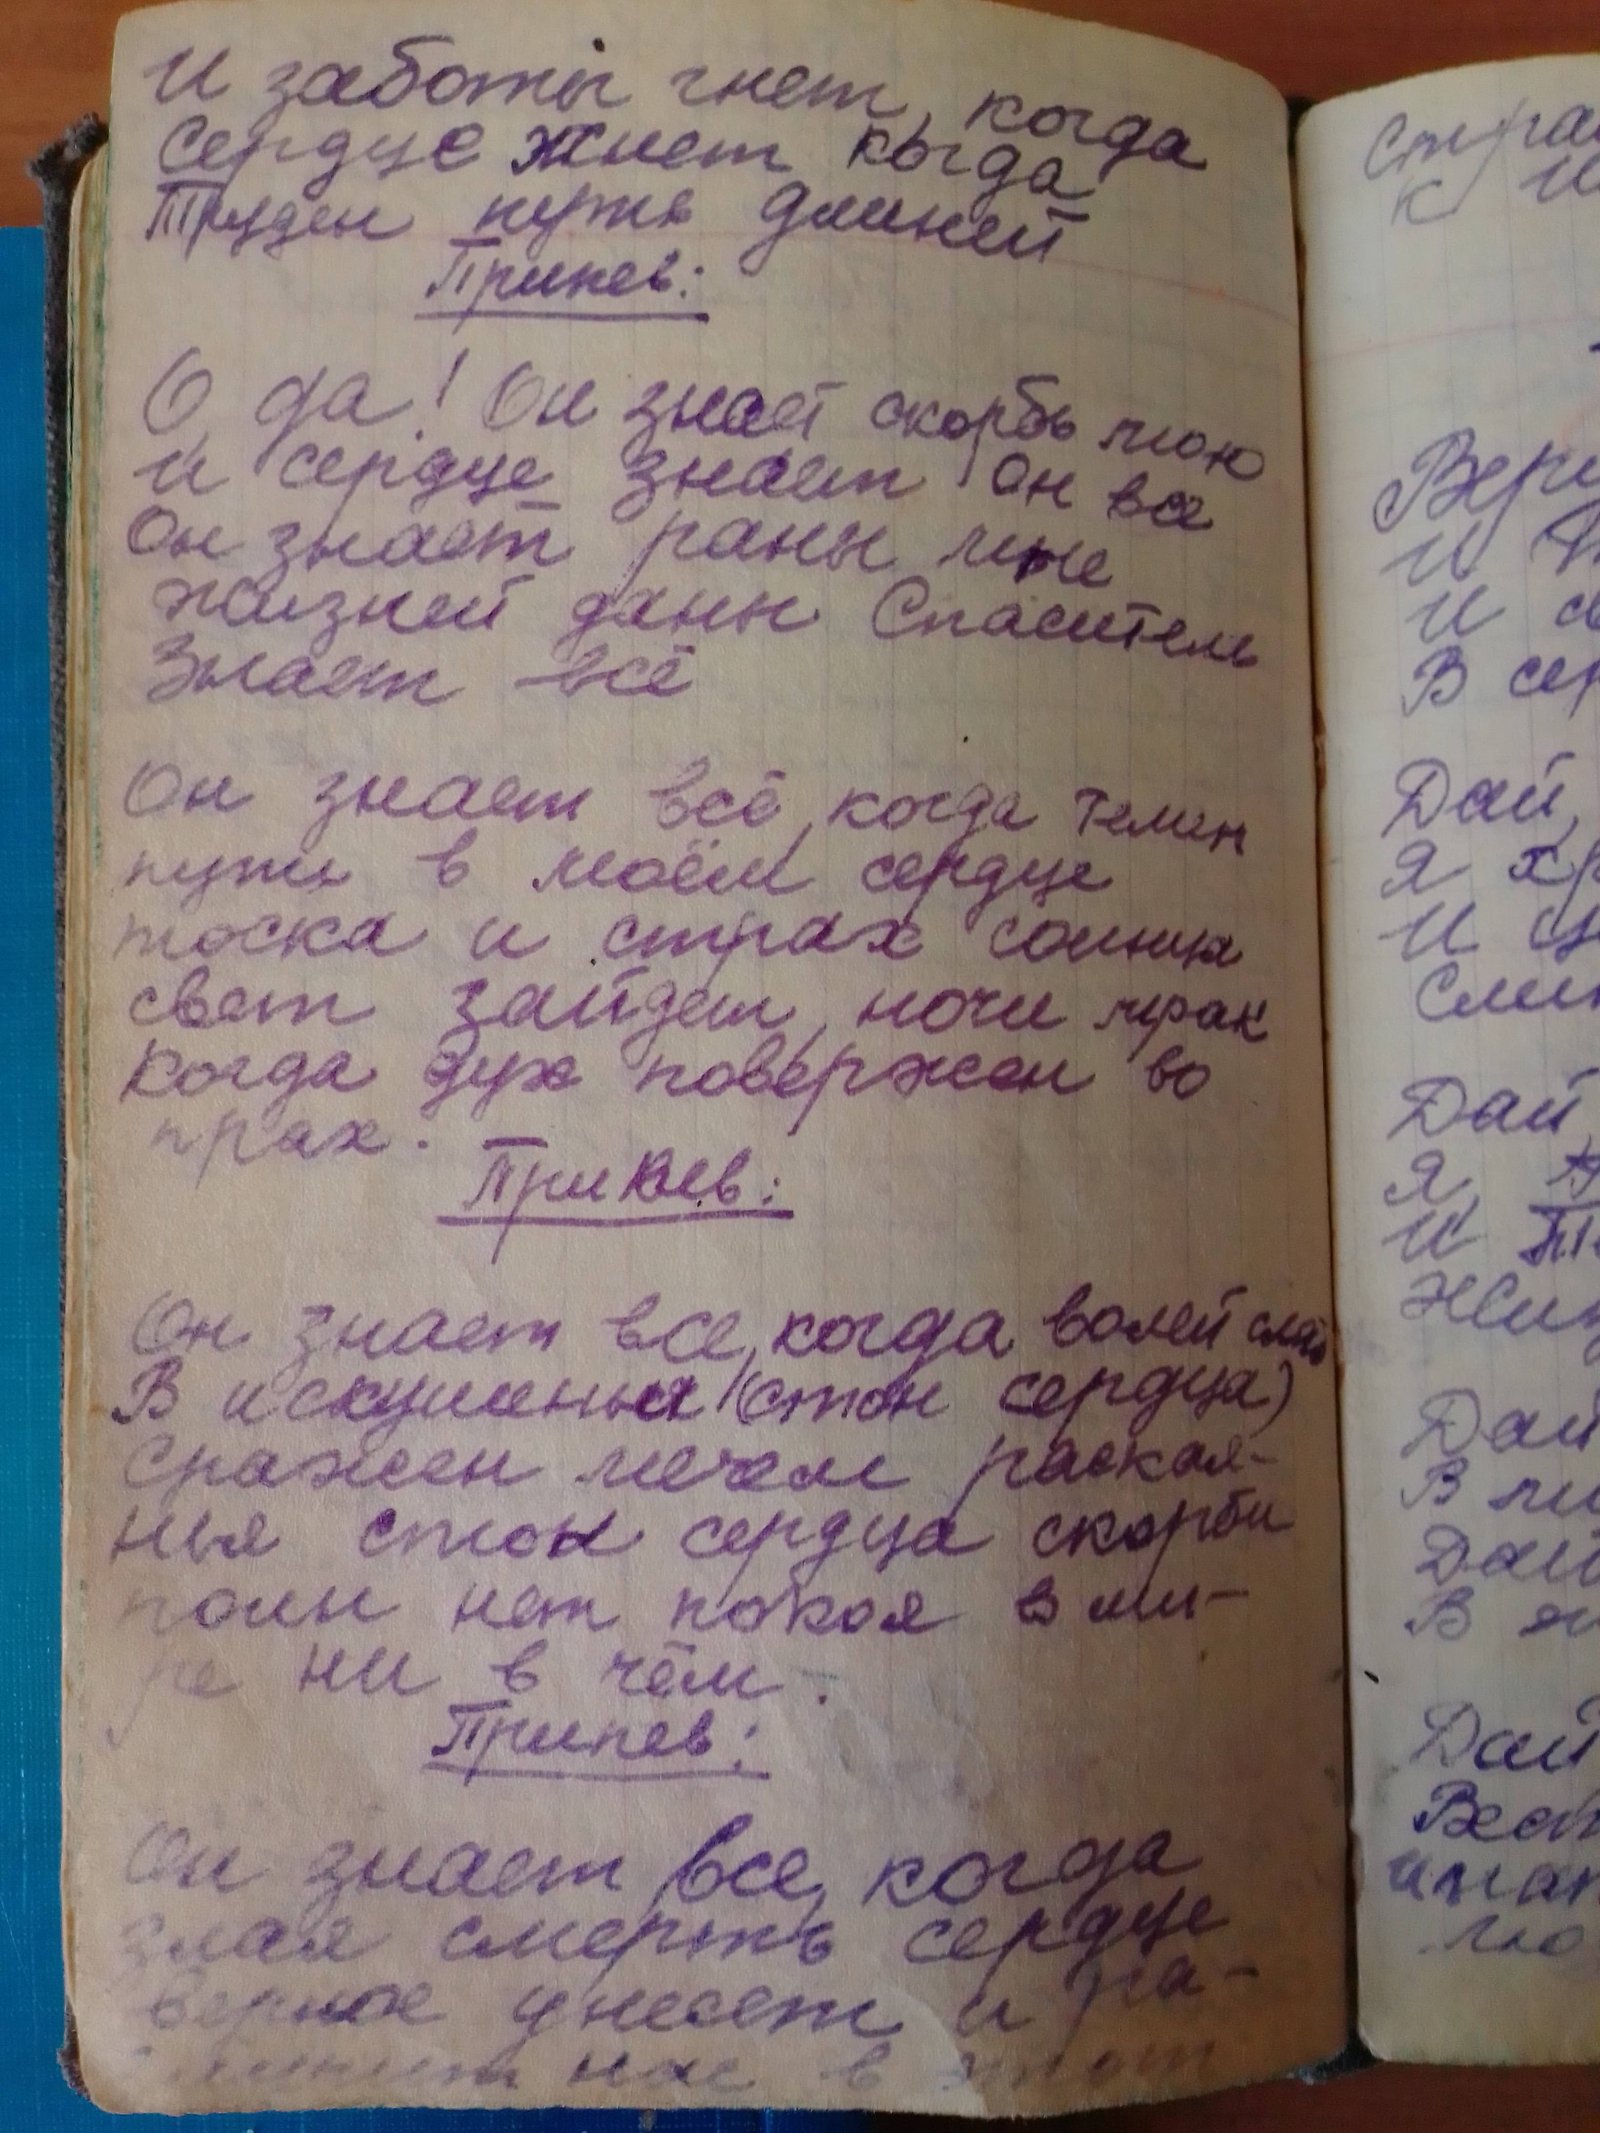 И заботы гнет, когда
сердце жнет когда
Труден путь длинней
Припев:
О да! Он знает скорбь мою
и сердце знает он все
Он знает раны мне
жизней даны Спаситель
Знает всё
Он знает всё, когда темен
путь в моём сердце
тоска и страх солнца
свет зайдем, ночи мрак
когда дух повержен во
прах.
Припев:
Он знает все, когда волей слаб
В искушенья (стон сердца)
Сражен мечем раская-
нья стон сердца скорби
полн нет покоя в ми-
ре ни в чём.
Припев:
Он знает все, когда
злая смерть сердце
верное унесет и
нас в этот
Стра
к
Вери
И
И св
В сер
Дай,
Я хр
И це
Слы
Дай,
Я,
И
Жиз
Дай
В ми
Дай
В
Дай
Вест